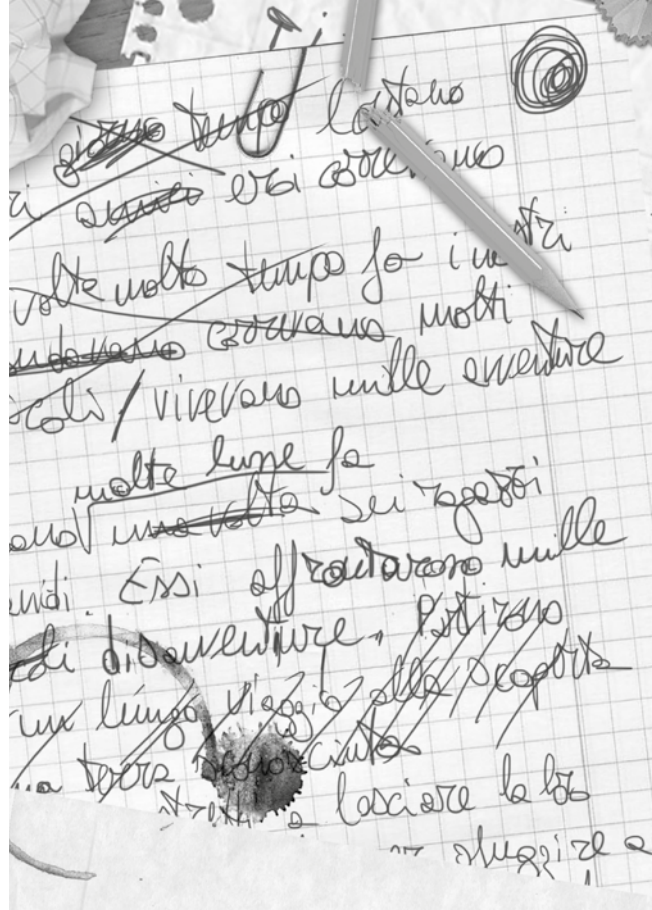 giorno tempo lontano
amici eroi correvano
volte molto tempo fa i nostri
andavano correvano molti
coli / vivevano mille avventure
molte lune fa
una volta sei ragazzi
Essi affrontarono mille
di disavventure. Partirono
un lungo viaggio alla scoperta
terra sconosciuta
a lasciare la loro
sfuggire a